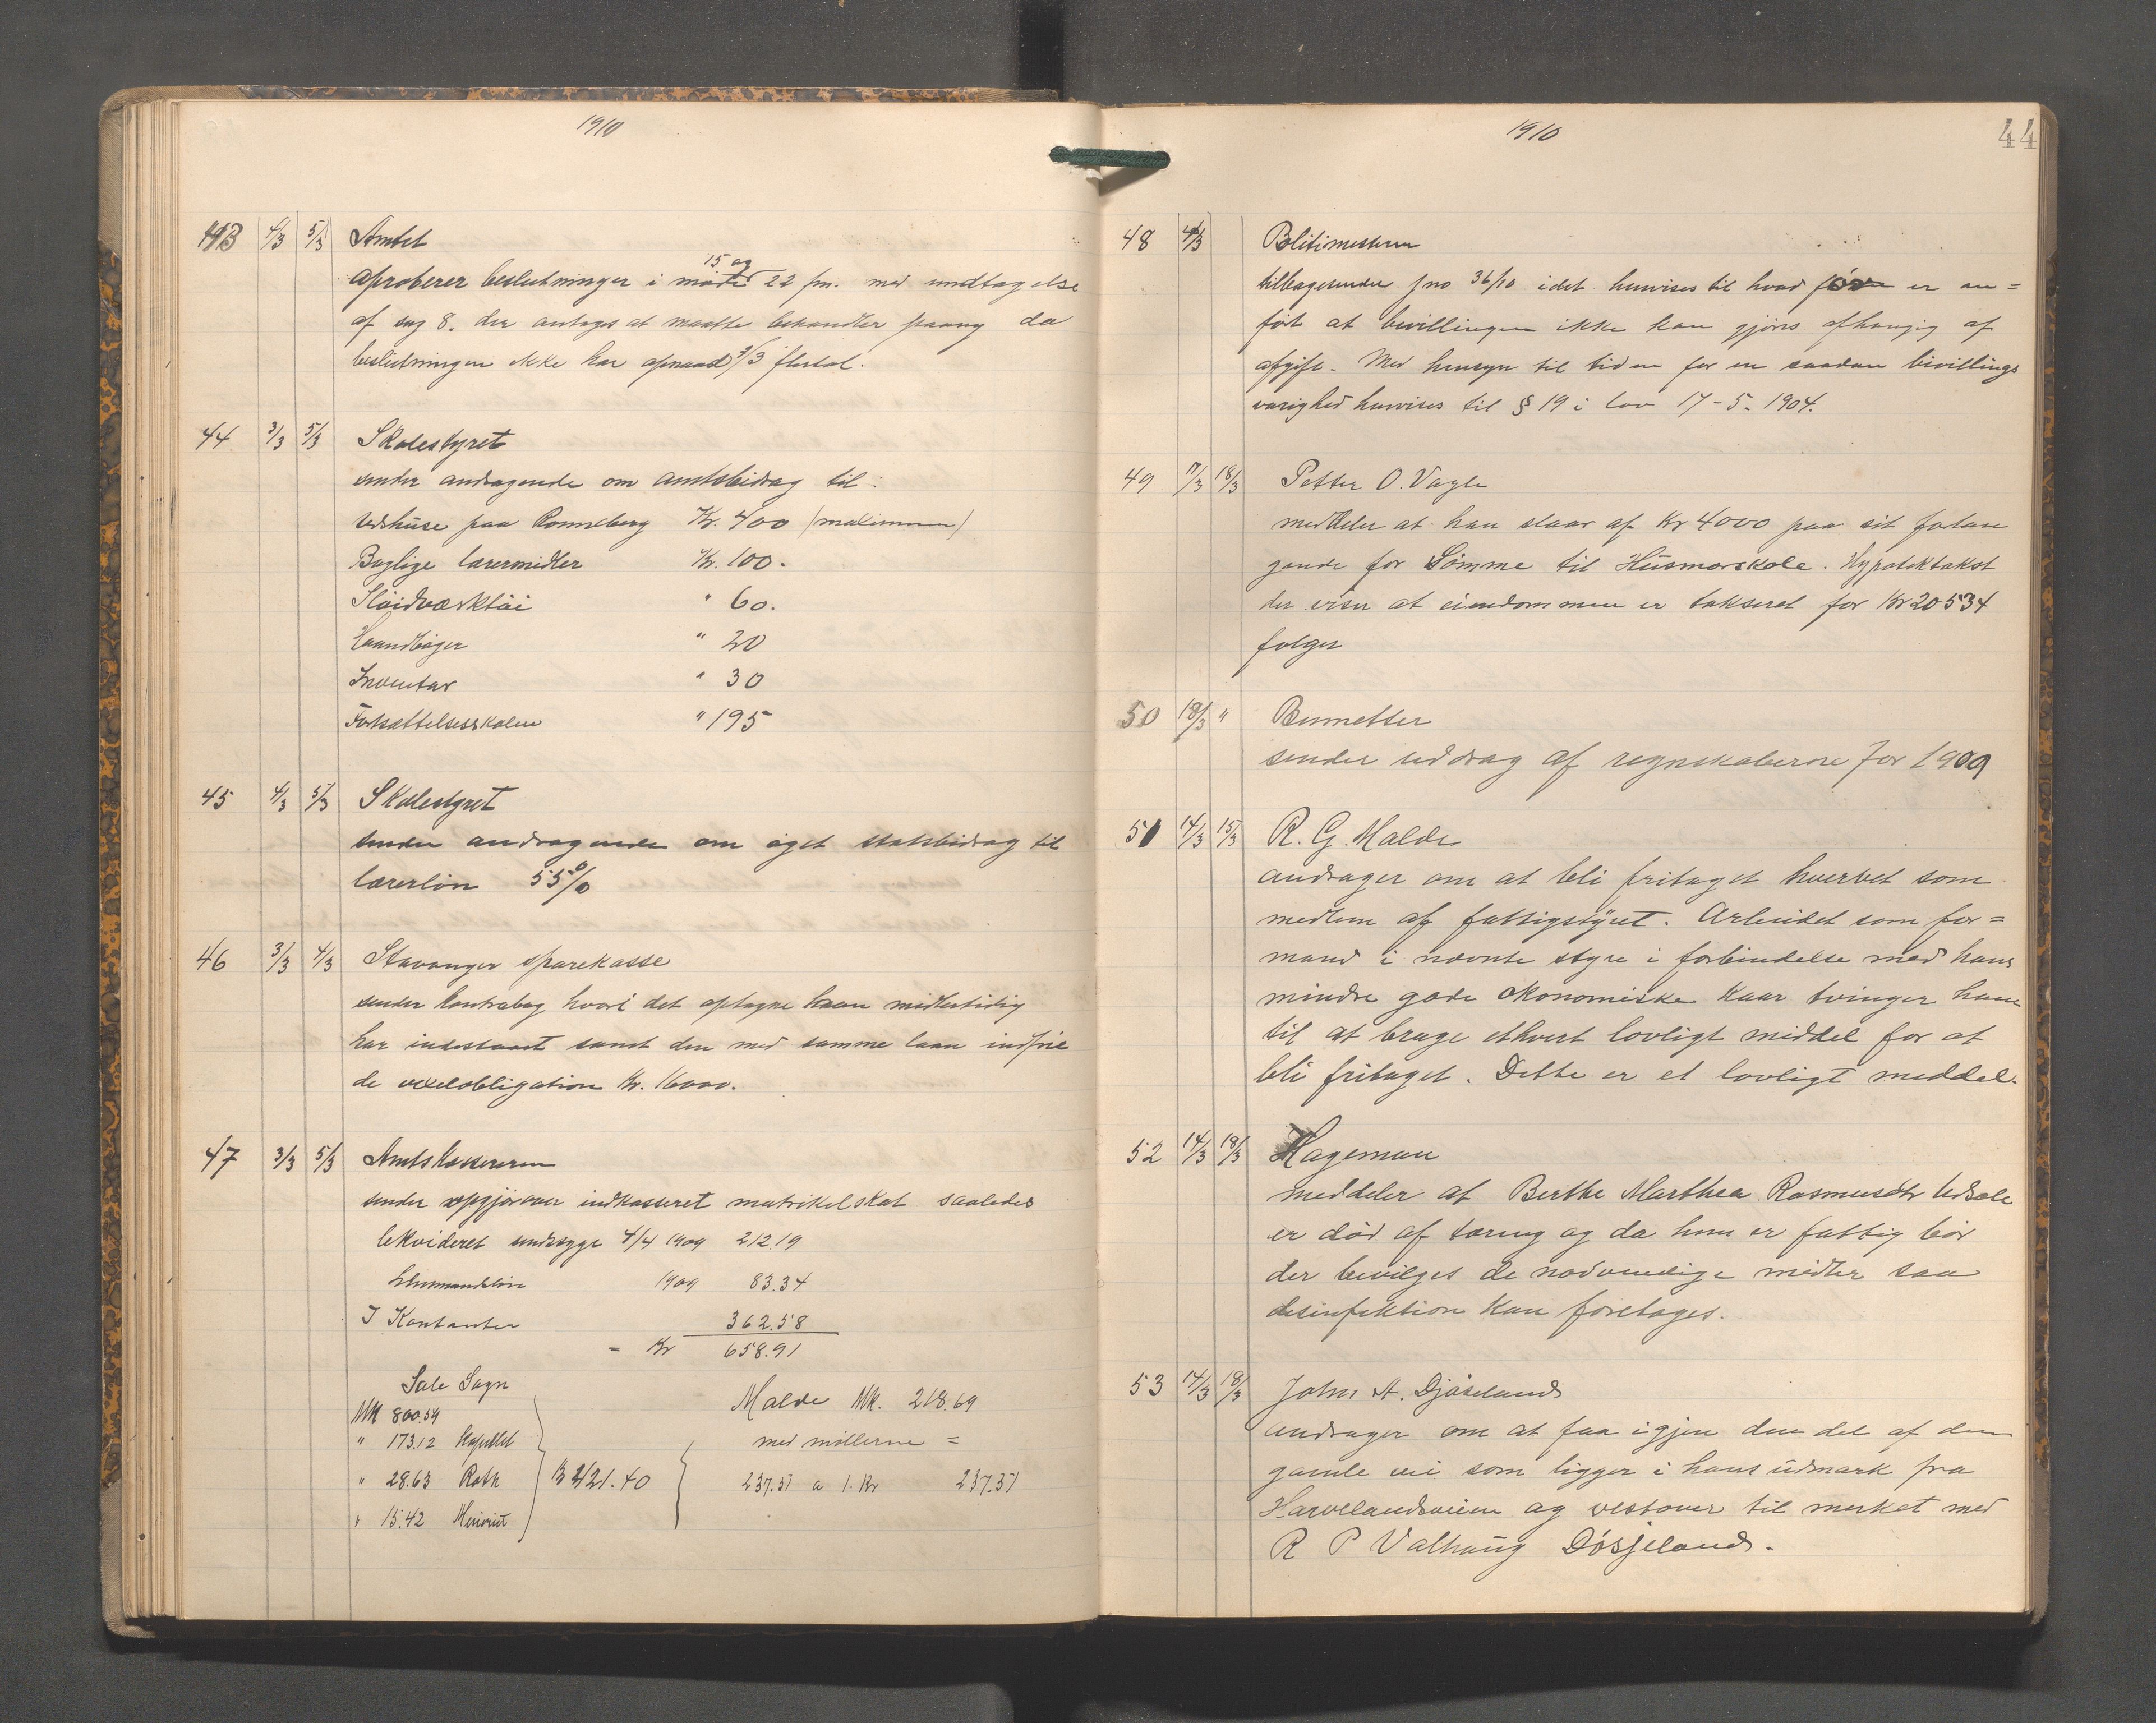 1910
43 4/3 5/3 Amtet
aproberer beslutninger i møde 15 og 22 fm. med undtagelse
af sag 8. der antages at maatte behandles paany da
beslutningen ikke har opnaaed 2/3 flertal.
44 3/3 5/3 Skolestyret
sender andragende om amtsbidrag til:
Vedhuse paa Ronneberg Kr. 400 (maximum)
Boglige læremidler Kr. 100.
Sløidværktøi " 60.
Haandbøger " 20
Inventar " 30
Fortsættelsesskolen " 195
45 4/3 5/3 Skolestyret
sender andragende om øget statsbidrag til
lærerløn 55%
46 3/3 4/3 Stavanger sparekasse
sender kontrabog hvori det optagne laan midlertidig
har indestaaet samt den med samme laan indfrie
de vexelobligation Kr. 16000.
47 3/3 5/3 Amtskassereren
sender opgjør over indkasseret matrikelskat saaledes
likvideret sindssyge 4/4 1909 212.19
1909 83.34
I Kontanter 362.58
= Kr 658.91
Sole Sogn
Mk 800.54
" 173.12 Kapellet
" 28.63 Roth
" 15.42
Malde Mk. 218.69
med møllerne =
237.51 a 1. Kr 237.51
1910
44
48 4/3 Politimesteren
tilbagesender jno 36/10 idet henvises til hvad før er an=
ført at bevillingen ikke kan gjøres afhængig af
afgift. Med hensyn til tiden for en saadan bevillings
varighed henvises til § 19 i lov 17-5-1904.
49 17/3 18/3 Petter O. Vagle
meddeler at han slaar af Kr 4000 paa sit forlan
gende for Sømme til Husmorskole. Hypotektakst
der viser at eiendommen er takseret for Kr 20534
følger
50 18/3 " Bernetter
sender uddrag af regnskaberne for 1909
51 14/3 15/3 R. G. Malde
andrager om at bli fritaget hvervet som
medlem af fattigstyret. Arbeidet som for=
mand i nævnte styre i forbindelse med hans
mindre gode økonomiske kaar tvinger ham
til at bruge ethvert lovligt middel for at
bli fritaget. Dette er et lovligt meddel.
52 14/3 18/3 Hageman
meddeler at Berthe Marthea Rasmusdtr Udsole
er død af tæring og da hun er fattig bør
der bevilges de nødvendige midler saa
desinfektion kan foretages.
53 14/3 18/3 John A. Djøseland
andrager om at faa igjen den del af den
gamle vei som ligger i hans udmark fra
Harvelandsveien og vestover til merket med
R P Valhaug Døsjeland.